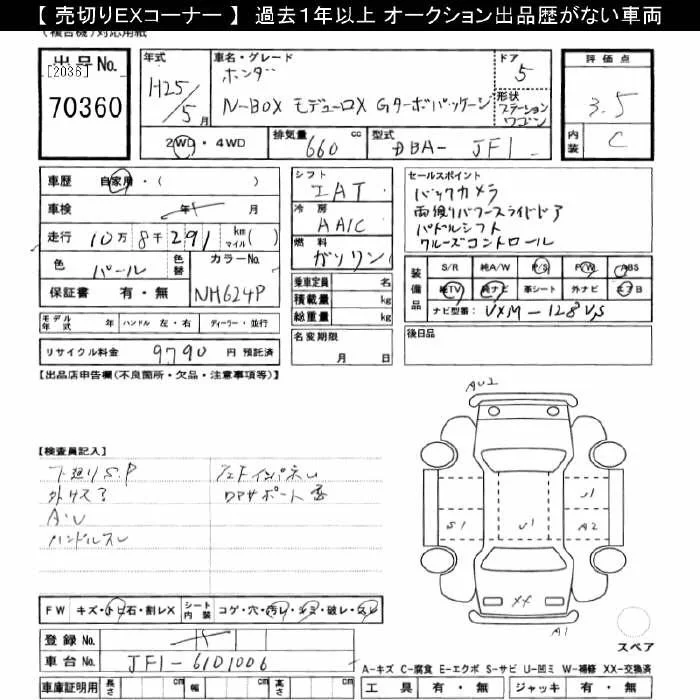 【 売切りEXコーナー 】 過去1年以上 オークション出品歴がない車両
(複合機)対応用紙
出品No. [2036] 70360
年式 H25/5月
車名・グレード ホンダ N-BOX モデューロX Gターボパッケージ
ドア 5
形状 ステーションワゴン
2WD・4WD
排気量 660 cc
型式 DBA- JF1
評価点 3.5
内装 C
車歴 自家用・( )
車検 年 月
走行 10万 8千 291 km マイル( )
色 パール 色替
カラーNo. NH624P
保証書 有・無
シフト IAT
冷房 AAC
燃料 ガソリン
乗車定員 名
積載量 kg
総重量 kg
セールスポイント
バックカメラ
両後りパワースライドドア
パドルシフト
クルーズコントロール
装備品 S/R 純A/W P/S P/W ABS
純TV 純ナビ 革シート 外ナビ エアB
ナビ型番: VXM-128VS
モデル年式 年 ハンドル 左・右 ディーラー・並行
リサイクル料金 9790 円 預託済
名変期限 月 日
後日品
【出品店申告欄(不良箇所・欠品・注意事項等)】
【検査員記入】
下廻りS.P
外キズ
A・U
ハンドルスレ
フェードインパネム
RPサポート
AU2
U1
S1
U1
A2
XX
A1
スペア
FW キズ・トビ石・割レX シート内装 コゲ・穴・汚レ・シミ・破レ・スレ
登録No.
車台No. JF1-6101006
A-キズ C-腐食 E-エクボ S-サビ U-凹ミ W-補修 XX-交換済
車庫証明用 長さ cm 幅 cm 高さ cm
工具 有・無 ジャッキ 有・無